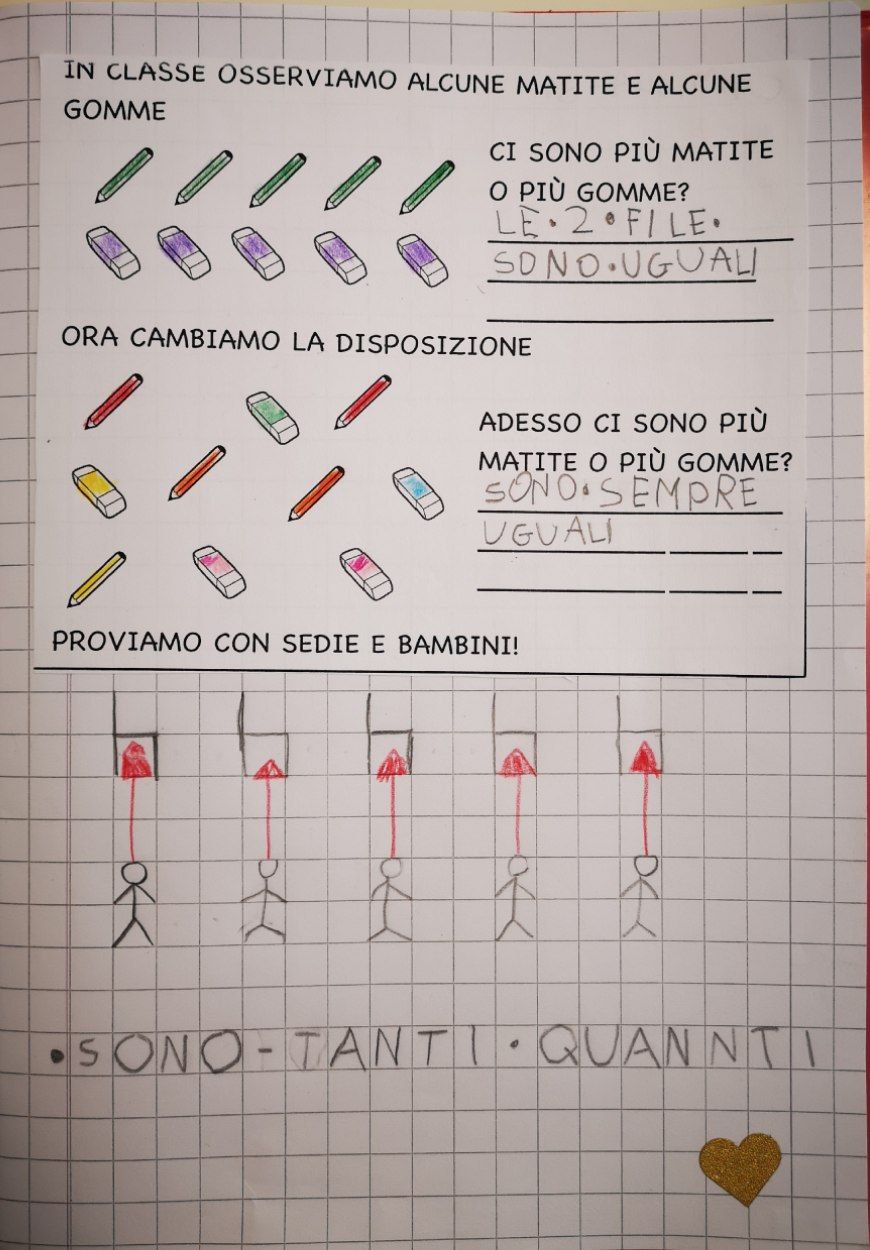 IN CLASSE OSSERVIAMO ALCUNE MATITE E ALCUNE
GOMME
CI SONO PIÙ MATITE
O PIÙ GOMME?
LE•2•FILE•
SONO•UGUALI
ORA CAMBIAMO LA DISPOSIZIONE
ADESSO CI SONO PIÙ
MATITE O PIÙ GOMME?
SONO•SEMPRE
UGUALI
PROVIAMO CON SEDIE E BAMBINI!
•SONO-TANTI•QUANNTI